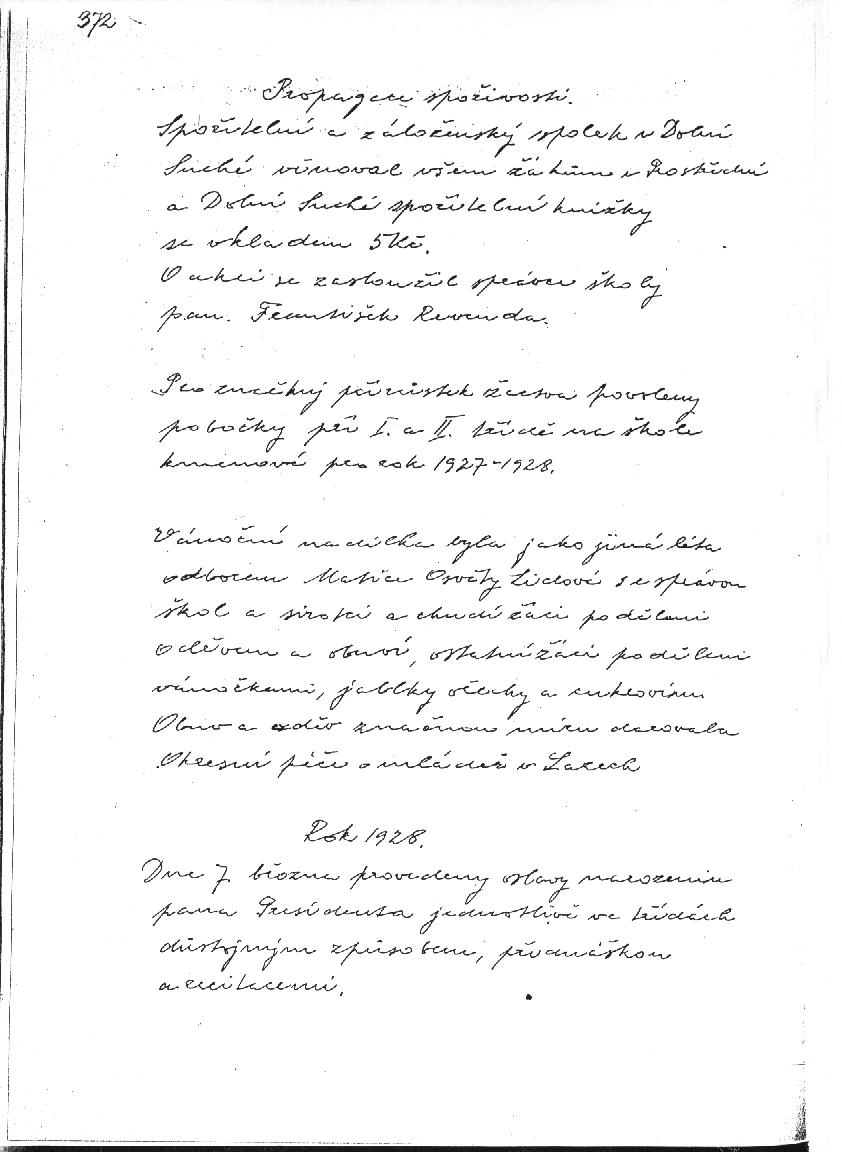 372
Propagace spořivosti.
Spořitelní a záloženský spolek v Dolní
Suché věnoval všem žákům v Prostřední
a Dolní Suché spořitelní knížky
se vkladem 5 Kč.
O akci se zasloužil správce školy
pan. František Revenda.
Pro značný přírůstek žactva povoleny
pobočky při I. a II. třídě na škole
kmenové pro rok 1927-1928.
Vánoční nadílka byla jako jiná léta
odborem Matice Osvěty Lidové se správou
škol a sirotci a chudí žáci poděleni
oděvem a obuví, ostatní žáci poděleni
vánočkami, jablky ořechy a cukrovím
Obuv a oděv značnou míru darovala
Okresní péče o mládež v Lazech
Rok 1928.
Dne 7 března provedeny oslavy narozenin
pana Presidenta jednotlivě ve třídách
důstojným způsobem, přednáškou
a recitacemi.